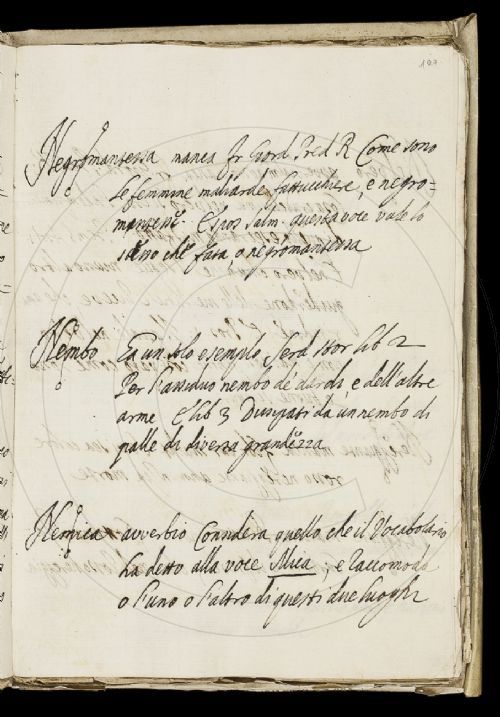 107
Negromantessa manca fr Giord. Pred. R. Come sono
le femmine maliarde, fattucchiere, e negro-
mantesse. Espos. Salm. questa voce vale lo
stesso che fata, o negromantessa
Nembo Ha un solo esempio Serd. stor. lib 2
Per l'assiduo nembo de' dardi, e dell'altre
arme E lib 3 Dissipati da un nembo di
palle di diversa grandezza
Nemica avverbio Considera quello che il Vocabolario
ha detto alla voce Mica; e raccomoda
o l'uno o l'altro di questi due luoghi